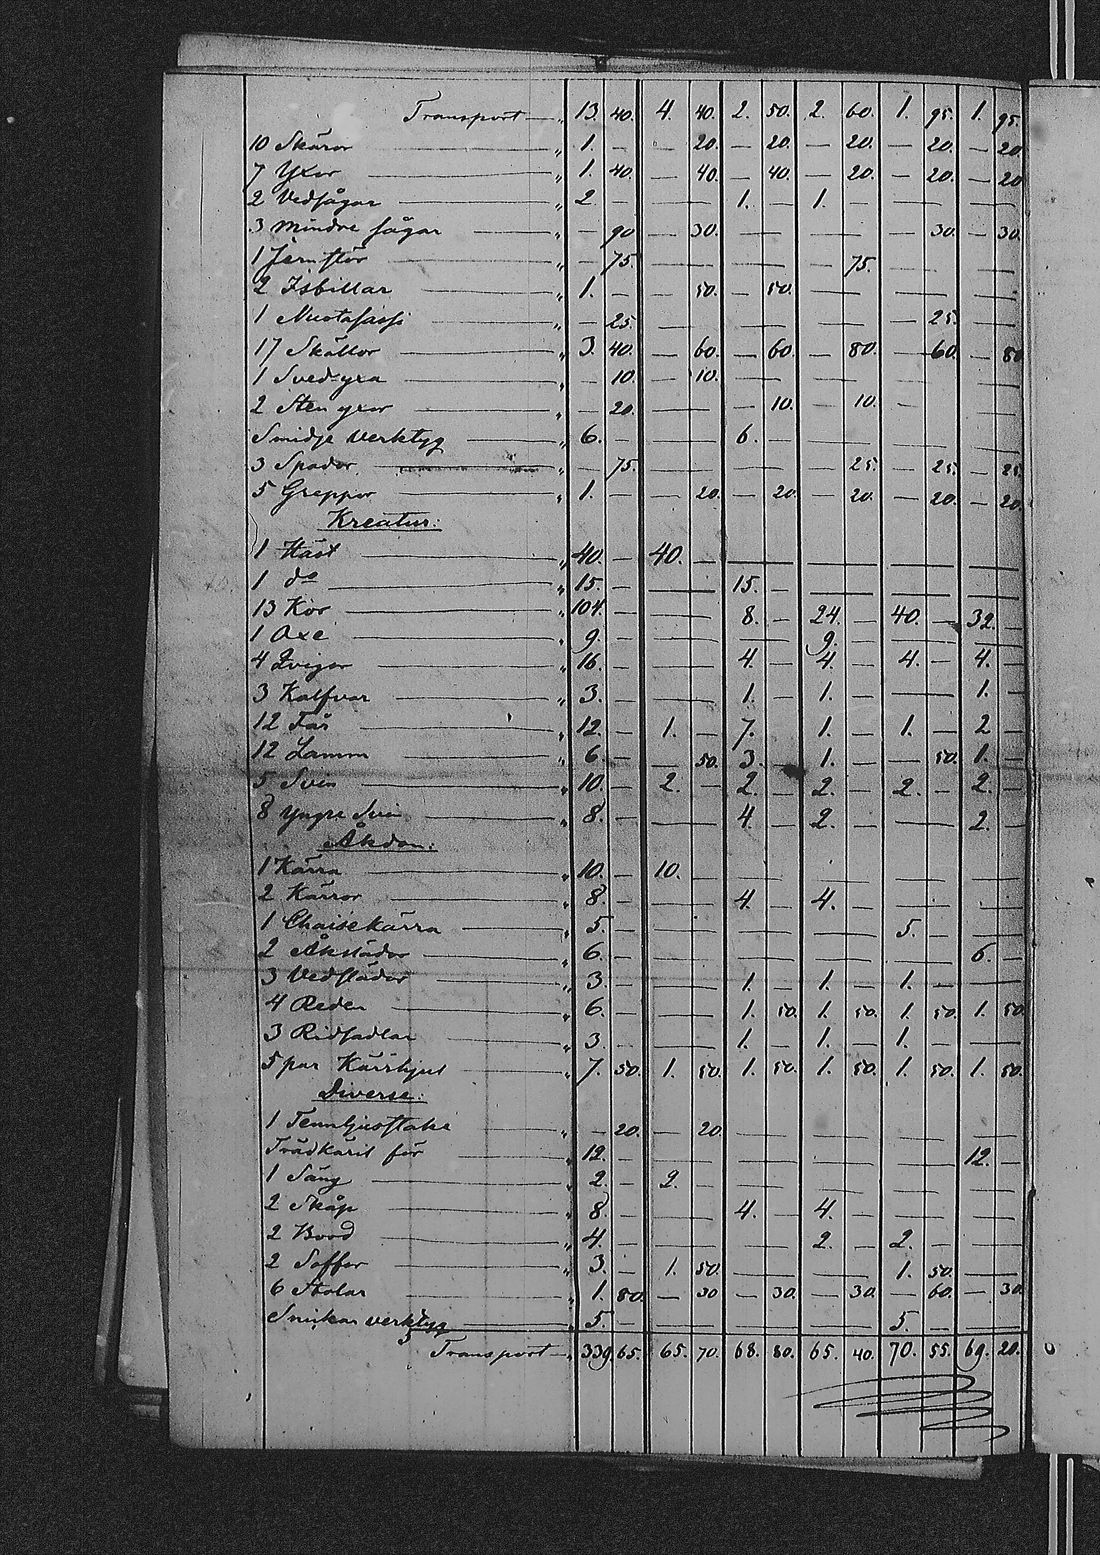 Transport — „ 13. 40. 4. 40. 2. 50. 2. 60. 1. 95. 1. 95.
10 Skäror — „ 1. — — 20. — 20. — 20. — 20. — 20
7 Yxor — „ 1. 40. — 40. — 40. — 20. — 20. — 20
2 Vedsågar — „ 2 — — — 1. — 1. — — — — —
3 Mindre sågar — „ — 90 — 30. — — — — — 30. — 30.
1 Jernstör — „ — 75. — — — — — 75. — — — —
2 Isbillar — „ 1. — — 50. — 50. — — — — — —
1 — „ — 25. — — — — — — — 25. — —
17 Skällor — „ 3. 40. — 60. — 60. — 80. — 60. — 80
1 Svedyxa — „ — 10. — 10. — — — — — — — —
2 Sten yxor — „ — 20. — — — 10. — 10. — — — —
Smidje verktyg — „ 6. — — — 6. — — — — — — —
3 Spador — „ — 75. — — — — — 25. — 25. — 25.
5 Greppor — „ 1. — — 20. — 20. — 20. — 20. — 20.
Kreatur:
1 Häst — „ 40. — 40. — — — — — — — — —
1 do — „ 15. — — — 15. — — — — — — —
13 Kor — „ 104. — — — 8. — 24. — 40. — 32. —
1 Oxe — „ 9. — — — — — 9. — — — — —
4 Qvigor — „ 16. — — — 4. — 4. — 4. — 4. —
3 Kalfvar — „ 3. — — — 1. — 1. — — — 1. —
12 Får — „ 12. — 1. — 7. — 1. — 1. — 2 —
12 Lamm — „ 6. — — 50. 3. — 1. — — 50. 1. —
5 Svin — „ 10. — 2. — 2. — 2. — 2. — 2. —
8 Yngre Svin — „ 8. — — — 4. — 2. — — — 2. —
Åkdon:
1 Kärra — „ 10. — 10. — — — — — — — — —
2 Kärror — „ 8. — — — 4. — 4. — — — — —
1 Chaisekärra — „ 5. — — — — — — — 5. — — —
2 Åkslädor — „ 6. — — — — — — — — — 6. —
3 Vedslädor — „ 3. — — — 1. — 1. — 1. — — —
4 Reden — „ 6. — — — 1. 50. 1. 50. 1. 50. 1. 50.
3 Ridsadlar — „ 3. — — — 1. — 1. — 1. — — —
5 par Kärrhjul — „ 7. 50. 1. 50. 1. 50. 1. 50. 1. 50. 1. 50.
Diverse:
1 Tennljusstake — „ — 20. — 20. — — — — — — — —
Trädkäril för — „ 12. — — — — — — — — — 12. —
1 Säng — „ 2. — 2. — — — — — — — — —
2 Skåp — „ 8. — — — 4. — 4. — — — — —
2 Bord — „ 4. — — — — — 2. — 2. — — —
2 Soffor — „ 3. — 1. 50. — — — — 1. 50. — —
6 Stolar — „ 1. 80. — 30 — 30. — 30. — 60. — 30.
Snickar verktyg — „ 5. — — — — — — — 5. — — —
Transport — „ 339. 65. 65. 70. 68. 80. 65. 40. 70. 55. 69. 20.